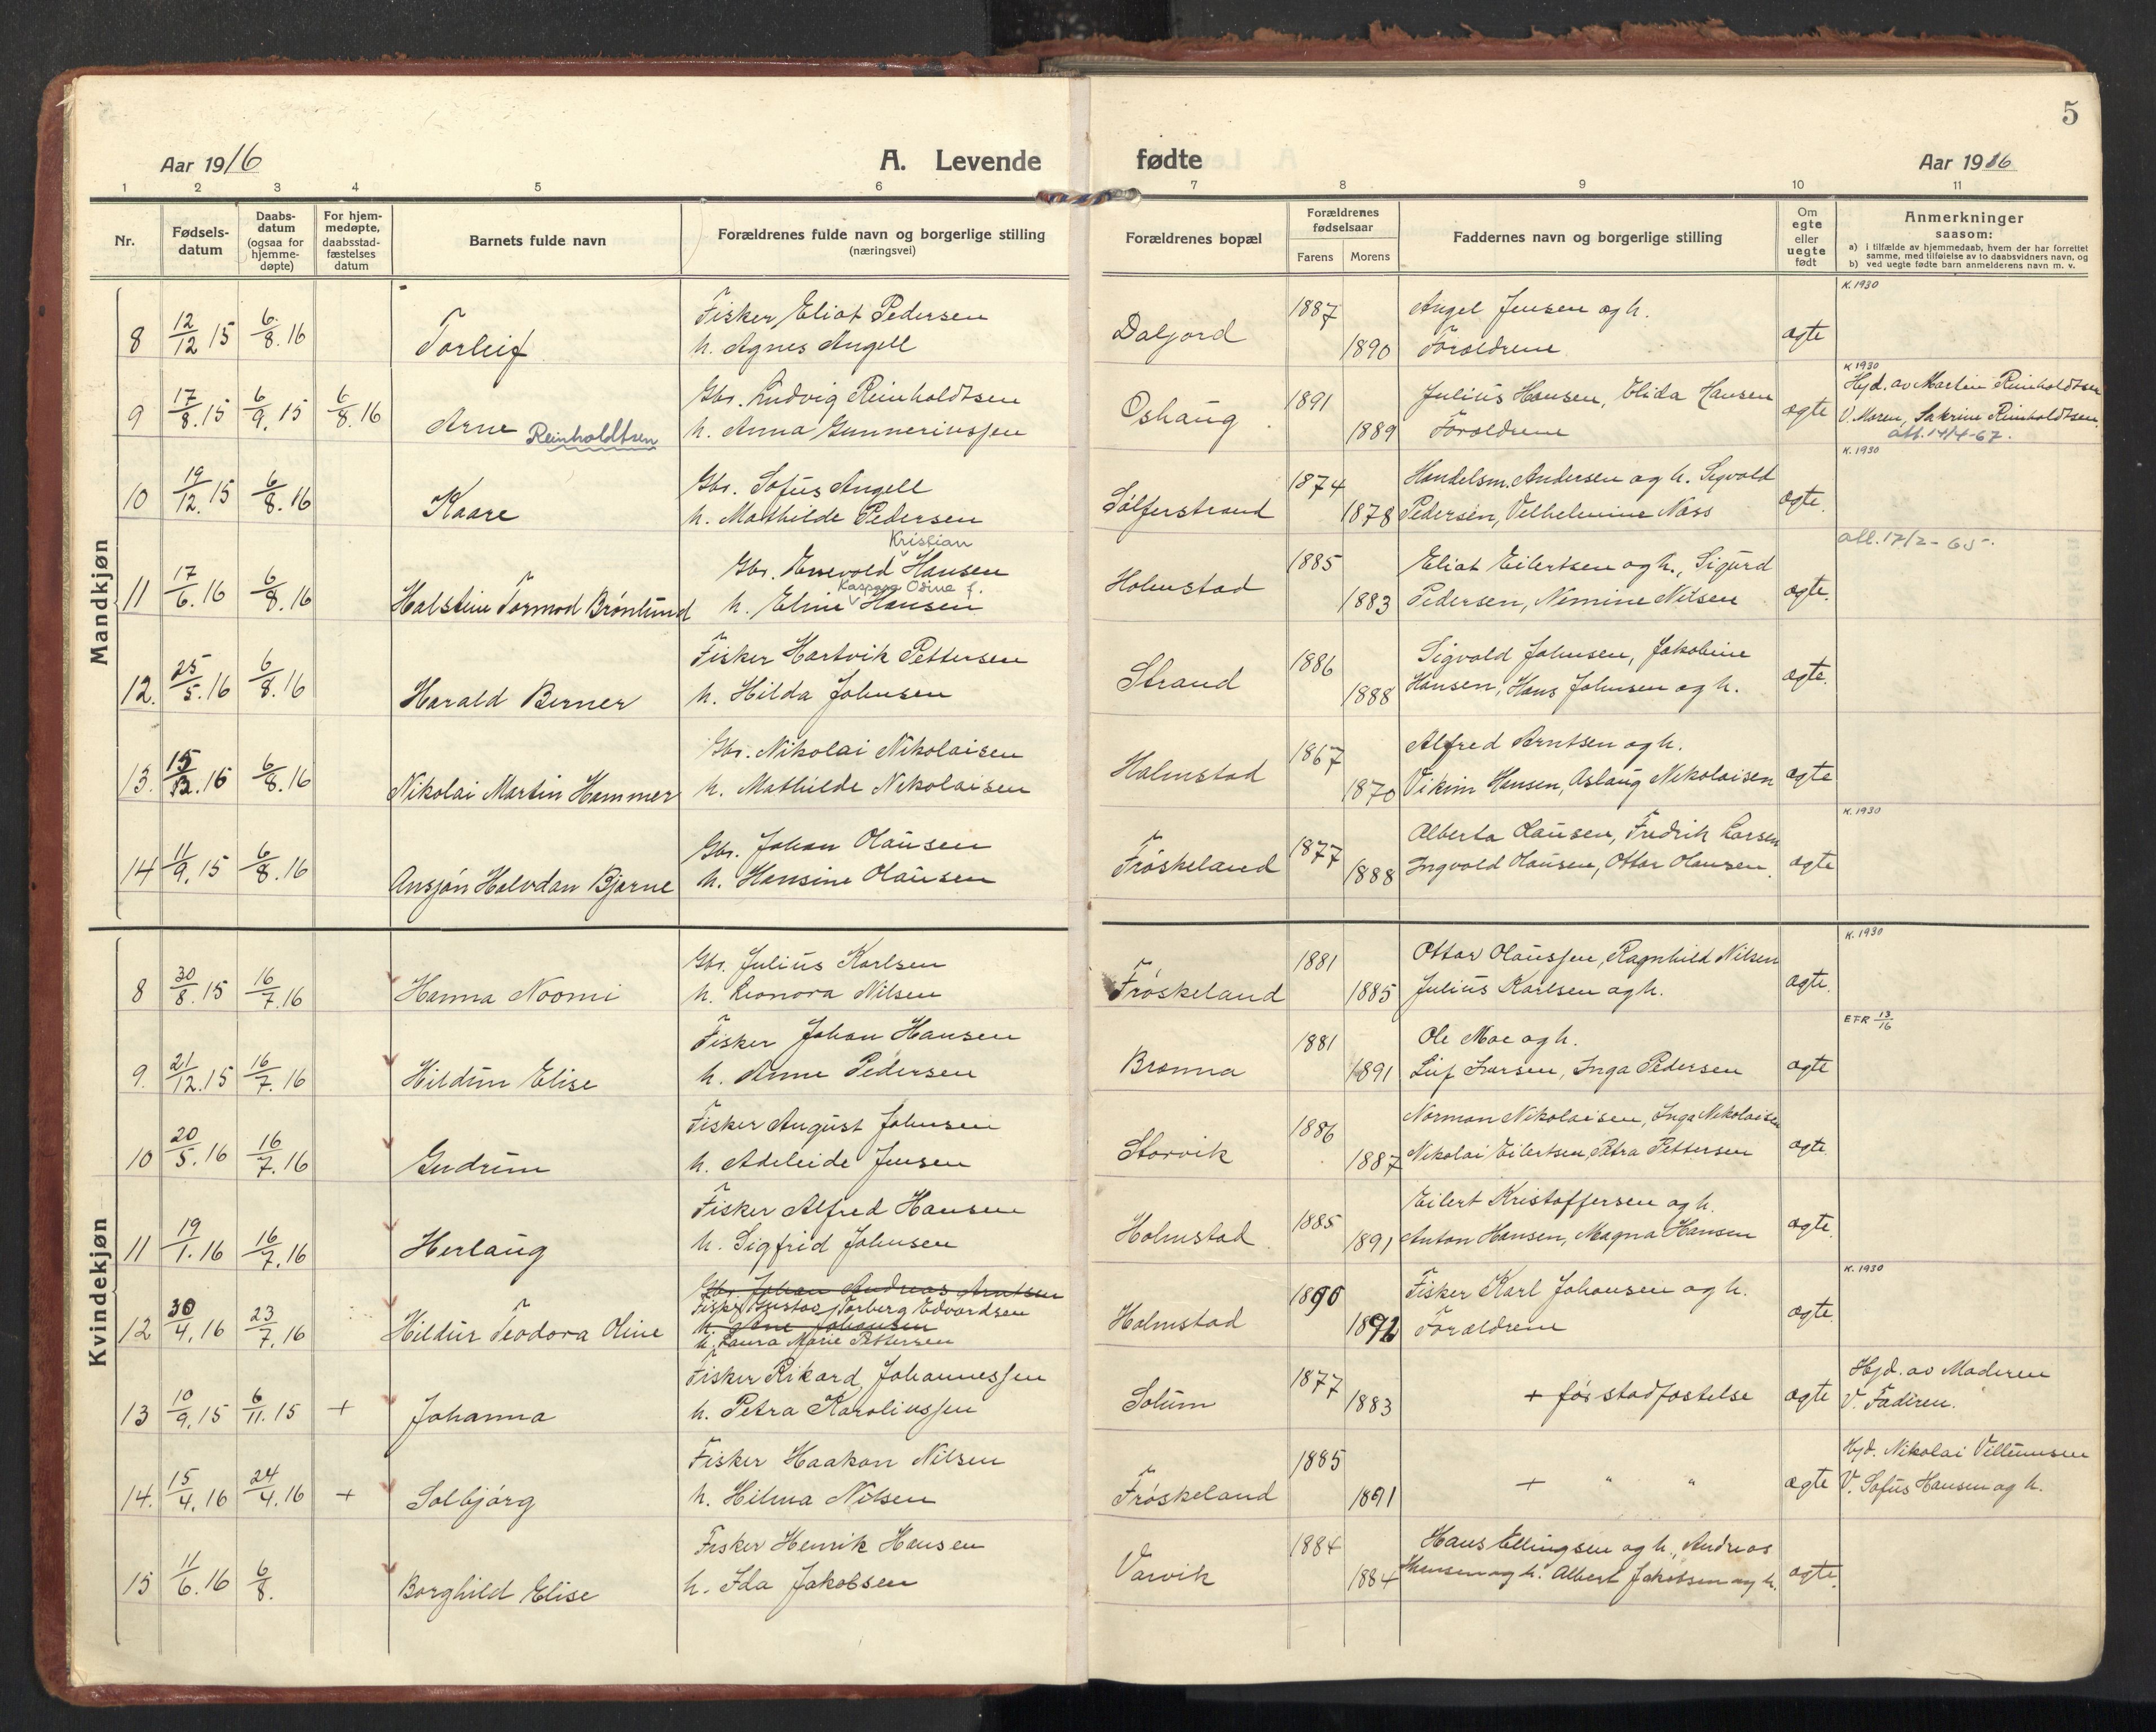 5
Aar 1916 A. Levende fødte Aar 1916
1 2 3 4 5 6 7 8 9 10 11
Nr.
Fødsels-
datum
Daabs-
datum
(ogsaa for
hjemme-
døpte)
For hjem-
medøpte,
daabsstad-
fæstelses
datum
Barnets fulde navn
Forældrenes fulde navn og borgerlige stilling
(næringsvei)
Forældrenes bopæl
Forældrenes
fødselsaar
Farens Morens
Faddernes navn og borgerlige stilling
Om
egte
eller
uegte
født
Anmerkninger
saasom:
a) i tilfælde av hjemmedaab, hvem der har forrettet
samme, med tilføielse av to daabsvidners navn, og
b) ved uegte fødte barn anmelderens navn m. v.
Mandkjøn
K. 1930
Fisker Eliot Pedersen 1887 Angel Jensen og h.
8 12/12 15 6/8. 16 Torleif h. Agnes Angell Daljord 1890 Foreldrene ægte
K 1930
Gbr. Ludvig Reinholdtsen 1891 Julius Hansen, Elida Hansen Hjd. av Martin Reinholdtsen
9 17/8. 15 6/9. 15 6/8. 16 Arne Reinholdtsen h. Anna Gunneriussen Oshaug 1889 Foreldrene ægte V. Maren, Sakrine Reinholdtsen
att. 14/4-67.
K. 1930
Gbr. Sofus Angell 1874 Handelsm. Andersen og h. Sigvold
10 19/12. 15 6/8. 16 Kaare h. Mathilde Pedersen Sølferstrand 1878 Pedersen, Vilhelmine Næss ægte.
Kristian
att. 17/2-65.
Gbr. Enevold Hansen 1885 Eliot Eilertsen og h., Sigurd
Kaspara Osine f.
11 17/6. 16 6/8. 16 Halstein Tormod Brønlund h. Eline Hansen Holmstad 1883 Pedersen, Nimine Nilsen ægte.
Fisker Hartvik Pettersen 1886 Sigvald Johnsen, Jakobine
12. 25/5. 16 6/8. 16 Harald Berner h. Hilda Johnsen Strand 1888 Hansen, Hans Johnsen og h. ægte.
Gbr. Nikolai Nikolaisen 1867 Alfred Arntsen og h.
13. 15/12. 15 6/8. 16 Nikolai Martin Hammer h. Mathilde Nikolaisen Holmstad 1870 Vikim Hansen, Aslaug Nikolaisen ægte
K. 1930
Gbr. Johan Olausen 1877 Alberta Olausen, Fredrik Larsen
14 11/9. 15 6/8. 16 Ansjón Halvdan Bjarne h. Hansine Olausen Frøskeland 1888 Ingvald Olausen, Ottar Olausen. ægte
Kvindekjøn
K. 1930
Gbr. Julius Karlsen 1881 Ottar Olaussen, Ragnhild Nilsen
8 30/8. 15 16/7. 16 Hanna Noomi h. Leonora Nilsen Frøskeland 1885 Julius Karlsen og h. ægte.
EFR 13/16
Fisker Johan Hansen 1881 Ole Moe og h.
9. 21/12. 15 16/7. 16 Hildun Elise h. Anne Pedersen Brønna 1891 Leif Larsen, Inga Pedersen ægte
Fisker August Johnsen 1886 Norman Nikolaisen, Inga Nikolaisen
10 20/5. 16 16/7. 16 Gudrun h. Adeleide Jensen Storvik 1887 Nikolai Eilertsen, Petra Pettersen ægte.
Fisker Alfred Hansen 1885 Eilert Kristoffersen og h.
11 19/1. 16 16/7. 16 Herlaug h. Sigfrid Johnsen Holmstad 1891 Anton Hansen, Magna Hansen ægte.
K. 1930
Gbr. Johan Andreas Arntsen
Fisker Gustav Torberg Edvardsen 1890 Fisker Karl Johansen og h.
h. Ane Johansen
12 30/4. 16 23/7. 16 Hildur Teodora Oline h. Laura Marie Pettersen Holmstad 1892 Forældrene ægte
Fisker Rikard Johannessen 1877 Hjd. av Moderen
13 10/9. 15 6/11. 15 + Johanna h. Petra Karoliussen Solum 1883 + før stadfæstelse ægte V. Faderen.
Fisker Haakon Nilsen 1885 Hjd. Nikolai Villumsen
14. 15/4. 16 24/4. 16 + Solbjørg h. Hilma Nilsen Frøskeland 1891 + " " ægte V. Sofus Hansen og h.
Fisker Henrik Hansen 1884 Hans Ellingsen og h., Andreas
15 11/6. 16 6/8. Borghild Elise h. Ida Jakobsen Varvik 1884 Hansen og h. Albert Jakobsen og h. ægte.